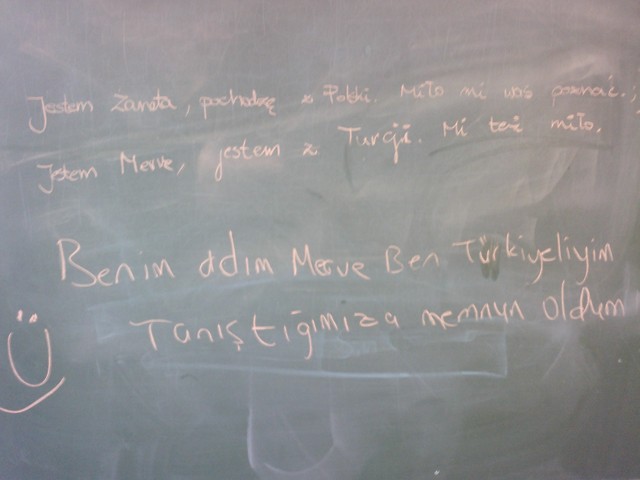 Jestem Żaneta, pochodzę z Polski. Miło mi was poznać.;
Jestem Merve, jestem z Turcji. Mi też miło.
Benim adım Merve Ben Türkiyeliyim
Tanıştığımıza memnun oldum
Ü